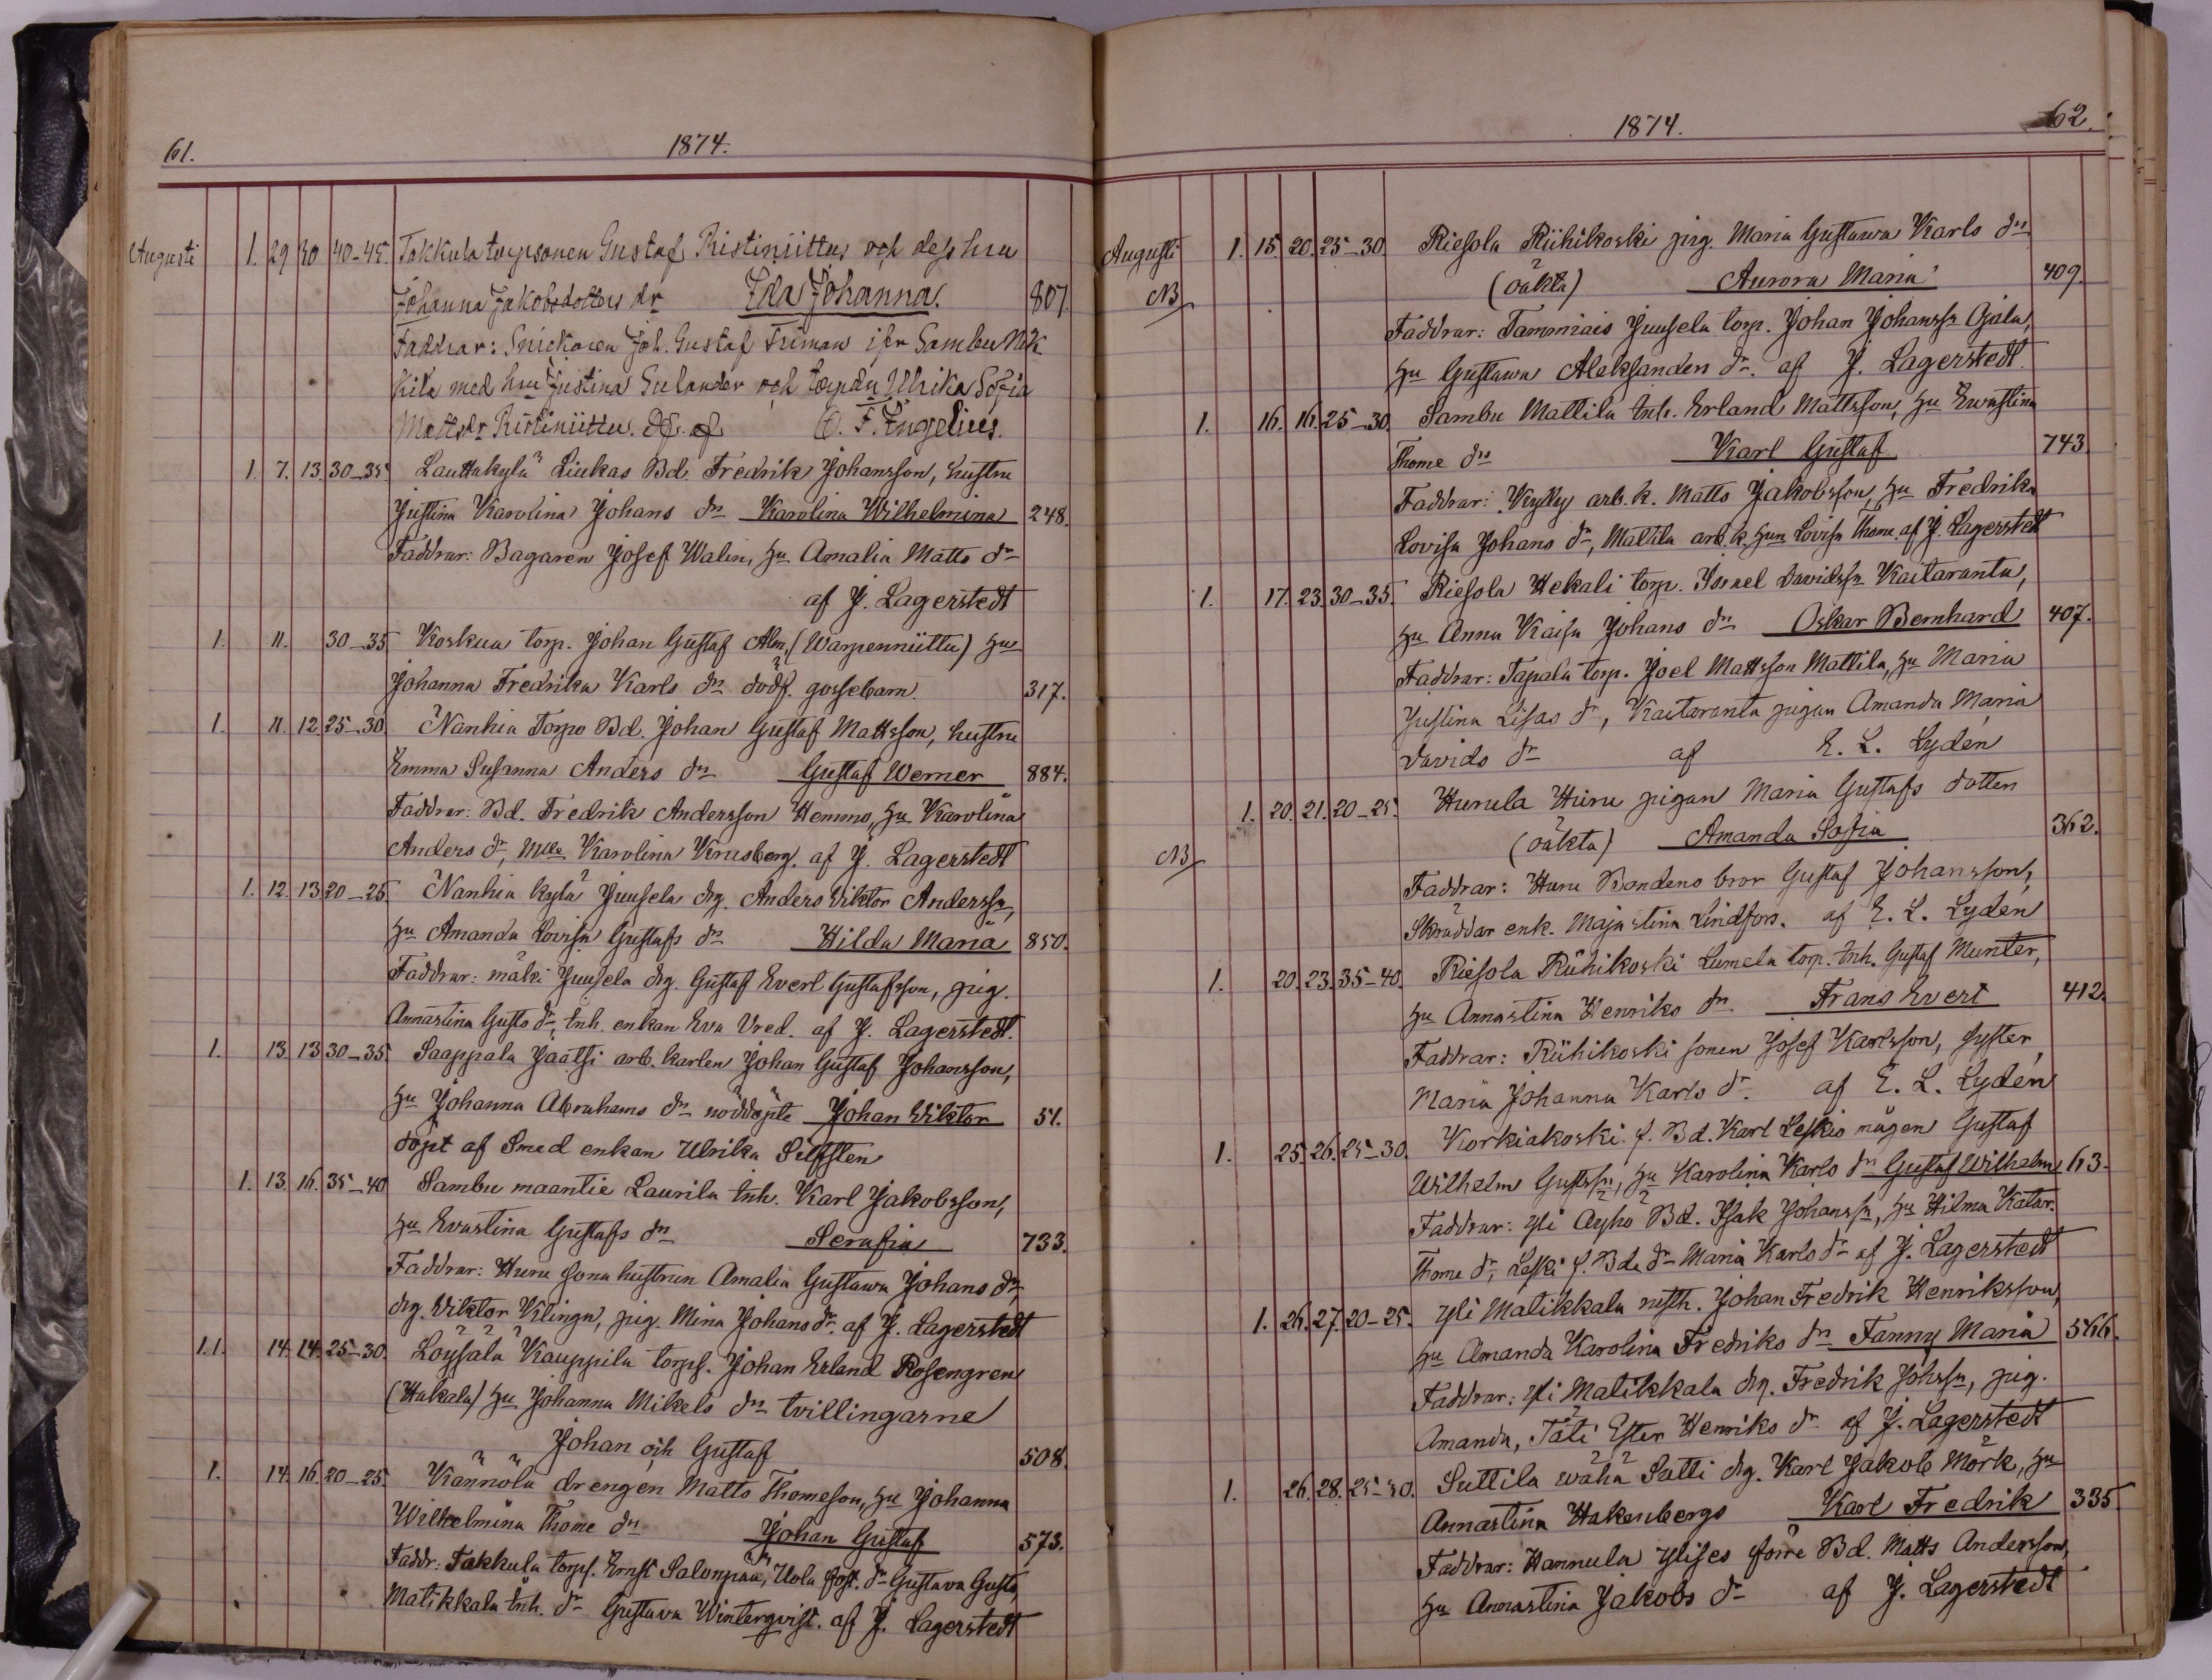 61.
1874.
Augusti 1. 29 30 40-45. Takkula torpsonen Gustaf Ristiniittus och dess hru
Johanna Jakobsdotters dr Ida Johanna. 807.
Faddrar: Snickaren Joh. Gustaf Friman ifr Sambu
med hru Justina och Ulrika Sofia
Mattsdr Ristiniittu. Df. af O. F. Ingelius.
1. 7. 13. 30-35 Lauttakylä Liukas Bd. Fredrik Johansson, hustru
Justina Karolina Johans dr Karolina Wilhelmina 248.
Faddrar: Bagaren Josef Walin, hu Amalia Matts dr
af J. Lagerstedt
1. 11. 30-35 Koskua torp. Johan Gustaf Alm, (Warpenniittu) hu
Johanna Fredrika Karls dr dödf. gossebarn. 317.
1. 11. 12. 25-30. Nanhia Torpo Bd. Johan Gustaf Mattsson, hustru
Emma Susanna Anders dr Gustaf Werner 884.
Faddrar: Bd. Fredrik Andersson Hemmo, hu Karolina
Anders dr, Mlla Karolina Krusberg. af J. Lagerstedt
1. 12. 13 20-25 Nanhia kylä Juusela drg. Anders Viktor Anderssn,
hu Amanda Lovisa Gustafs dr Hilda Maria 850.
Faddrar: mäki Juusela drg. Gustaf Evert Gustafsson, pig.
Annastina Gusts dr, Inh. enkan Eva Vred. af J. Lagerstedt.
1. 13. 13 30-35 Saappala Jaatsi arb. karlen Johan Gustaf Johansson,
hu Johanna Abrahams dr nöddöpte Johan Viktor 51.
döpt af Smed enkan Ulrika Selfsten
1. 13. 16. 35-40 Sambu maantie Laurila Inh. Karl Jakobsson,
hu Evastina Gustafs dr Serafia 733.
Faddrar: Huru sona hustrun Amalia Gustawa Johans dr,
drg. Viktor Klinga, pig. Mina Johans dr. af J. Lagerstedt
1.1. 14. 14. 25-30. Löysälä Kauppila torpf. Johan Erland Rosengren
(Hakala) hu Johanna Mikels dr tvillingarne
Johan och Gustaf 508.
1. 14. 16. 20-25. Kännölä drengen Matts Thomeson, hu Johanna
Wilhelmina Thome dr Johan Gustaf 573.
Faddr: Takkula torpf. Ernst Salonpää, Uola fost. dr Gustava Gusta,
Matikkala Inh. dr Gustava Wintergvist. af J. Lagerstedt
1874.
62.
Augusti 1. 15. 20. 25-30. Riesola Riihikoski pig. Maria Gustawa Karls dr
NB (oäkta) Aurora Maria 409.
Faddrar: Tammiais Juusela torp. Johan Johanssn Ojala,
hu Gustawa Aleksanders dr. af J. Lagerstedt.
1. 16. 16. 25-30. Sambu Mattila Inh. Erland Mattsson, hu Ewastina
Thome dr Karl Gustaf 743.
Faddrar: arb. k. Matts Jakobsson, hu Fredrika
Lovisa Johans dr, Mattila arb. k. hun Lovisa Thome. af J. Lagerstedt
1. 17. 23. 30-35. Riesola Hekali torp. Israel Davidssn Kaitaranta,
hu Anna Kaisa Johans dr Oskar Bernhard 407.
Faddrar: Tapala torp. Joel Mattsson Mattila, hu Maria
Justina Lisas dr, Kaitaranta pigan Amanda Maria
Davids dr af E. L. Lydén
1. 20. 21. 20-25. Hurula Huru pigan Maria Gustafs dotter
NB (oäkta) Amanda Sofia 362.
Faddrar: Huru Bondens bror Gustaf Johansson,
Skräddar enk. Majastina Lindfors. af E. L. Lydén
1. 20. 23. 35-40. Riesola Riihikoski Lumela torp. Inh. Gustaf Munter,
hu Annastina Henriks dr Frans Evert 412.
Faddrar: Riihikoski sonen Josef Karlsson, syster
Maria Johanna Karls dr. af E. L. Lydén
1. 25. 26. 25-30. Korkiakoski f. Bd. Karl Leskis mågen Gustaf
Wilhelm Gustssn, hu Karolina Karls dr Gustaf Wilhelm 63.
Faddrar: yli Äyhö Bd. Isak Johanssn, hu Hilma Katar.
Thome dr, Leski f. Bds dr Maria Karls dr af J. Lagerstedt
1. 26. 27. 20-25. yli Matikkala nysth. Johan Fredrik Henriksson,
hu Amanda Karolina Fredriks dr Fanny Maria 566.
Faddrar: yli Matikkala drg. Fredrik Johssn, pig.
Amanda, Täti Ester Henriks dr af J. Lagerstedt
1. 26. 28. 25-30. Suttila wähä Sutti drg. Karl Jakob Mörk, hu
Annastina Hakenbergs Karl Fredrik 335.
Faddrar: Hannula Ylises förre Bd. Matts Andersson,
hu Annastina Jakobs dr af J. Lagerstedt